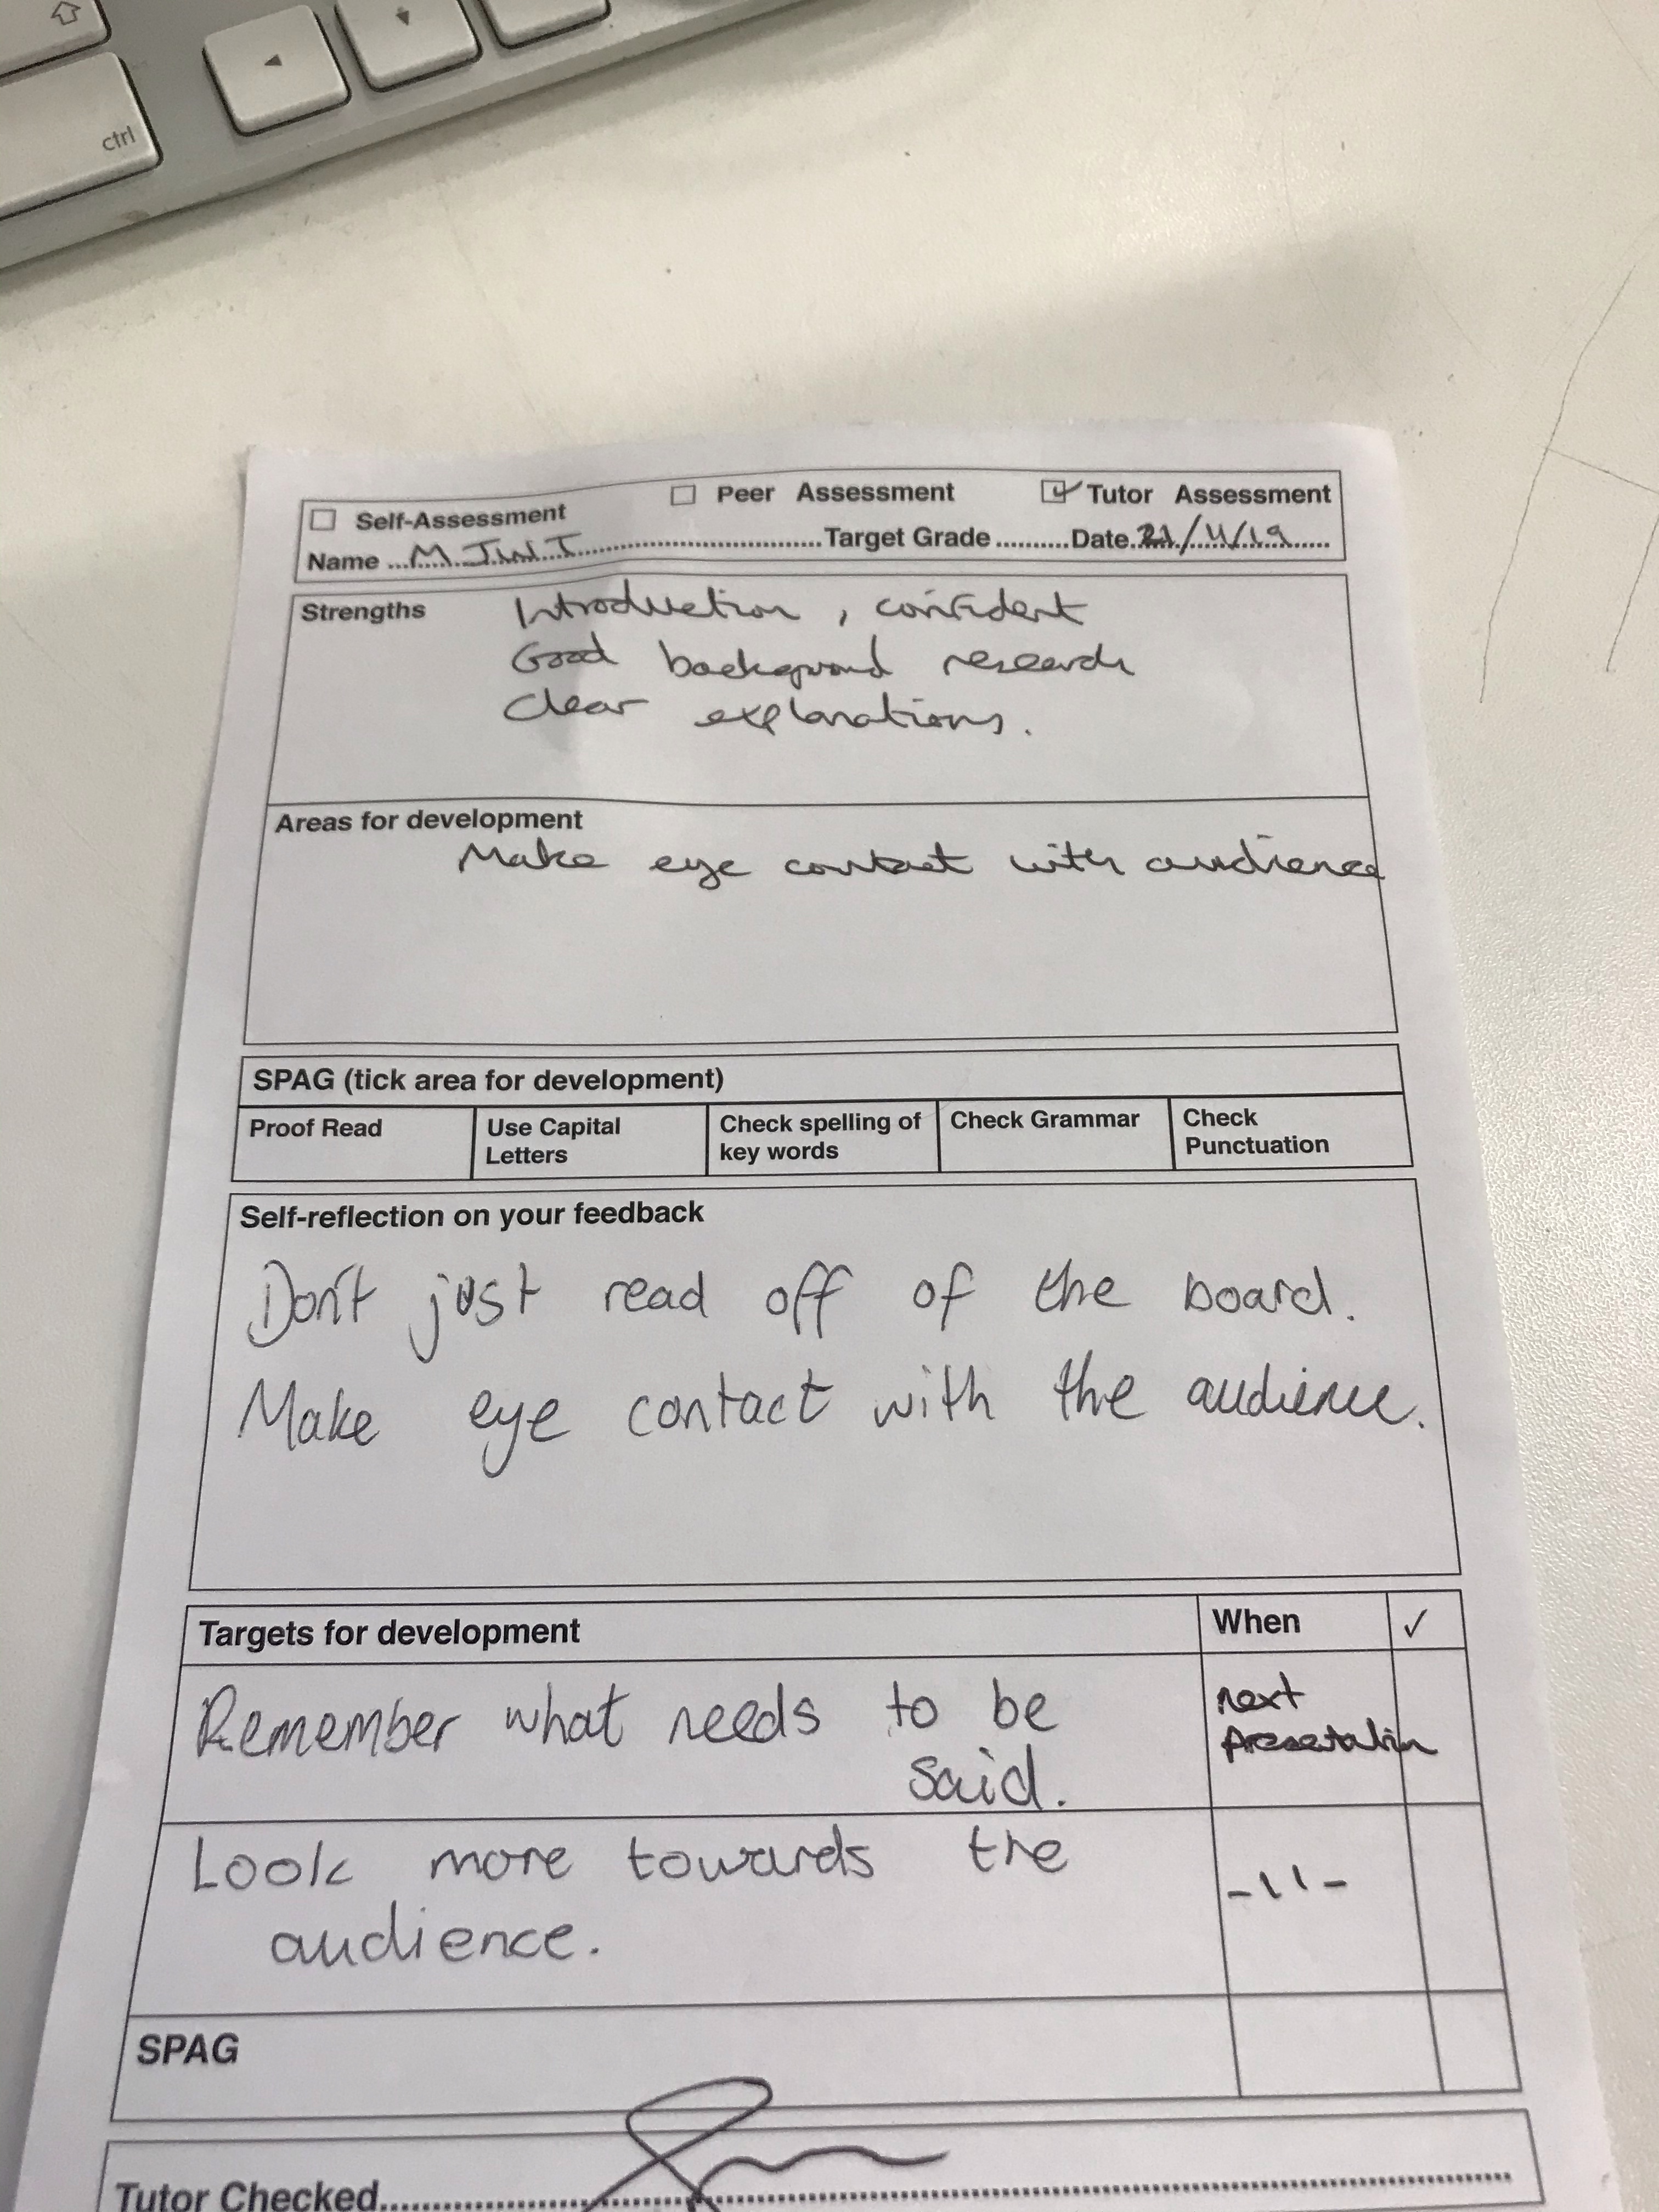 ctrl
Self-Assessment Peer Assessment Tutor Assessment
Name Target Grade Date 21/11/19
Strengths Introduction, confident
Good background research
Clear explanations.
Areas for development
Make eye contact with audience
SPAG (tick area for development)
Proof Read Use Capital Letters Check spelling of key words Check Grammar Check Punctuation
Self-reflection on your feedback
Don't just read off of the board.
Make eye contact with the audience.
Targets for development When ✓
Remember what needs to be said. next presentation
Look more towards the audience. -11-
SPAG
Tutor Checked